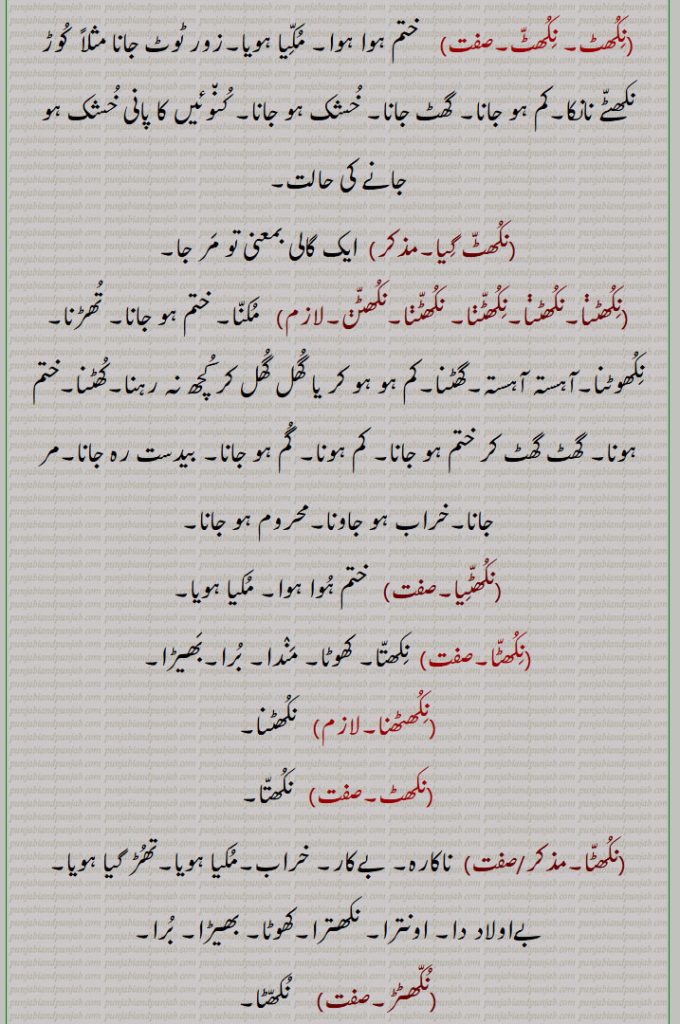 (نِکُھٹ۔ نِکُھٹّ۔صفت) ختم ہوا ہوا۔ مُکِّیا ہویا۔زور ٹوٹ جانا مثلاً کُوڑ
نکھٹے نانکا۔کم ہو جانا۔ گھٹ جانا۔ خُشک ہو جانا۔ کُنّوئیں کا پانی خُشک ہو
جانے کی حالت۔
(نکُھٹّ گِیا۔مذکر) ایک گالی بمعنی تو مَر جا۔
(نِکُھٹݨا۔نکُھٹݨا۔نِکُھٹّݨا۔ نکُھٹّݨا۔نکُھٹّݨ۔لازم) مُکنّا۔ ختم ہو جانا۔ تُھڑنا۔
نِکُھوٹنا۔آہستہ آہستہ۔گھٹنا۔کم ہو ہو کر یا گُھل گُھل کر کُچھ نہ رہنا۔کُھٹنا۔ختم
ہونا۔ گھٹ گھٹ کر ختم ہو جانا۔ کم ہونا۔ گُم ہو جانا۔ بیدست رہ جانا۔مر
جانا۔خراب ہو جاونا۔محروم ہو جانا۔
(نکُھٹِّیا۔صفت) ختم ہُوا ہوا۔ مُکیا ہویا۔
(نِکُھٹّا۔صفت) نِکھتّا۔ کھوٹا۔ مَنْدا۔ بُرا۔بَھیڑا۔
(نِکُھٹھنا۔لازم) نکُھٹنا۔
(نکھٹ۔صفت) نکُھتّا۔
(نکُھٹّا۔مذکر/صفت) ناکارہ۔ بےکار۔ خراب۔مُکیا ہویا۔تھُڑ گیا ہویا۔
بےاولاد دا۔ اونترا۔ نکھترا۔کھوٹا۔ بھیڑا۔ بُرا۔
(نُکھّٹڑ۔صفت) نُکھٹّا۔